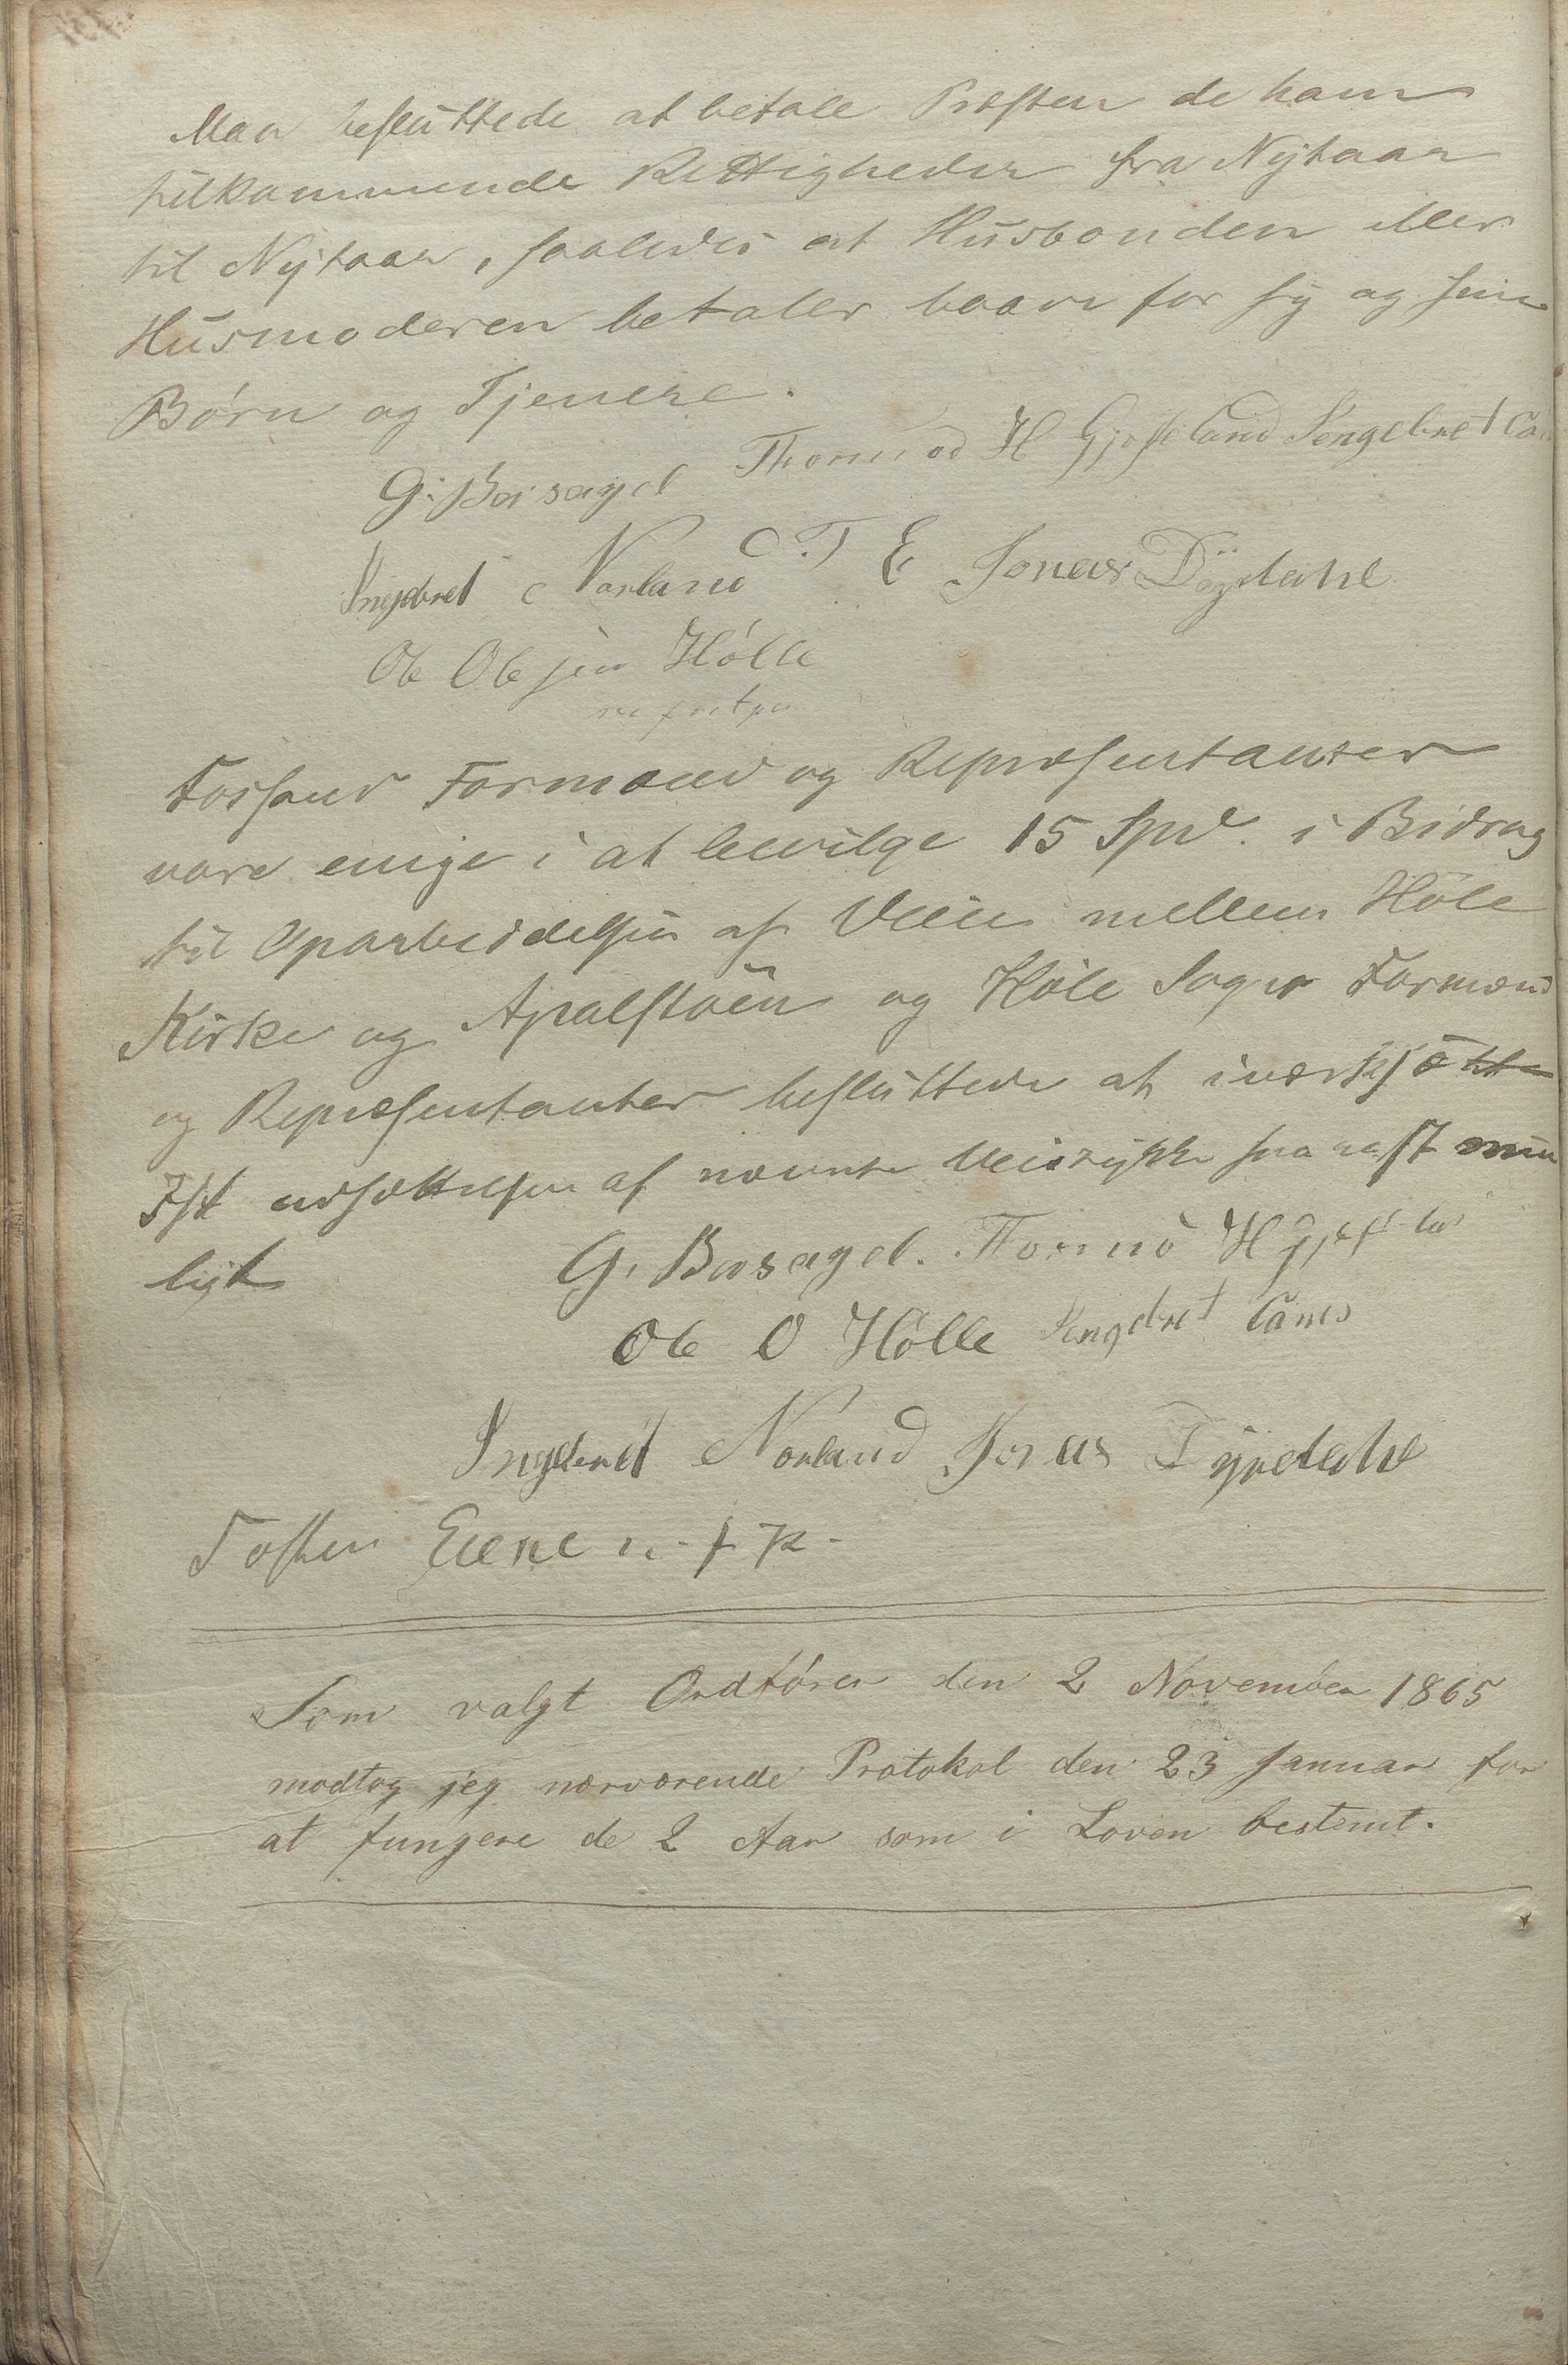 Man besluttede at betale Præsten de ham
tilkommende Rettigheder fra Nytaar
til Nytaar, saaledes at Husbonden eller
Husmoderen betaler baade for sig og sine
Børn og Tjenere.
G. Barsagel Thormod H Gjesteland Ingebret
Ingebret Norland T E Jonas Dÿrdahl
Ole Olesen Hölle
m f paa
Fossand Formænd og Repræsentanter
vare enige i at bevilge 15 Spd. i Bidrag
til Oparbeidelsen af Veien mellem Höle
Kirke og Apalstøen og Höle Sogns Formænd
og Repræsentanter besluttede at iværksætte
Istandsættelsen af nævnte Veistykke snarest mu
ligt
G. Barsagel. H
Ole O Hölle Ingebret Eanes
Ingebret Norland Jonas Dÿrdahl
Tosten Eiene m. f P.
Som valgt Ordförer den 2 November 1865
modtog jeg nærværende Protokol den 23 Januar for
at fungere de 2 Aar som i Loven bestemt.